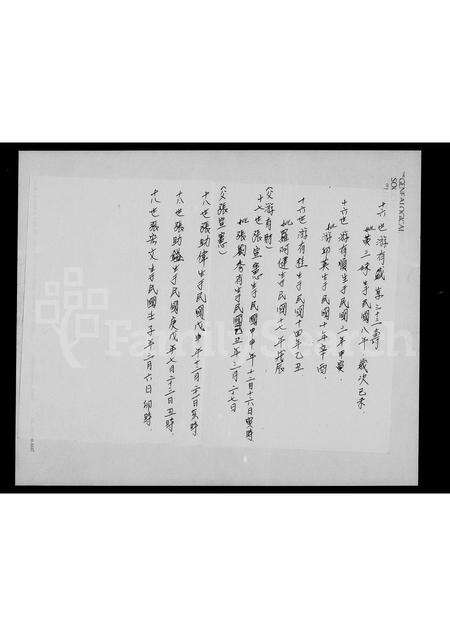 十六世游有盛享三十三壽
妣黃三妹生于民國八年歲次己未
十六世游有順生于民國三年甲寅.
妣游却英生于民國十年辛酉.
十六世游有旺生于民國十四年乙丑
妣羅阿健生于民國十七年戊辰
(父游有財)
十七世張笙憲生于民國甲申年十二月十六日寅時
妣張劉秀有生于民國丑年三月二十七日
(父張笙憲)
十八世張助偉生于民國戊申年十二月二十一日亥時
十八世張助生于民國庚戊年七月二十二日丑時.
十八世張安文生于民國壬子年二月六日卯時
GENEALOGICAL
FamilySearch